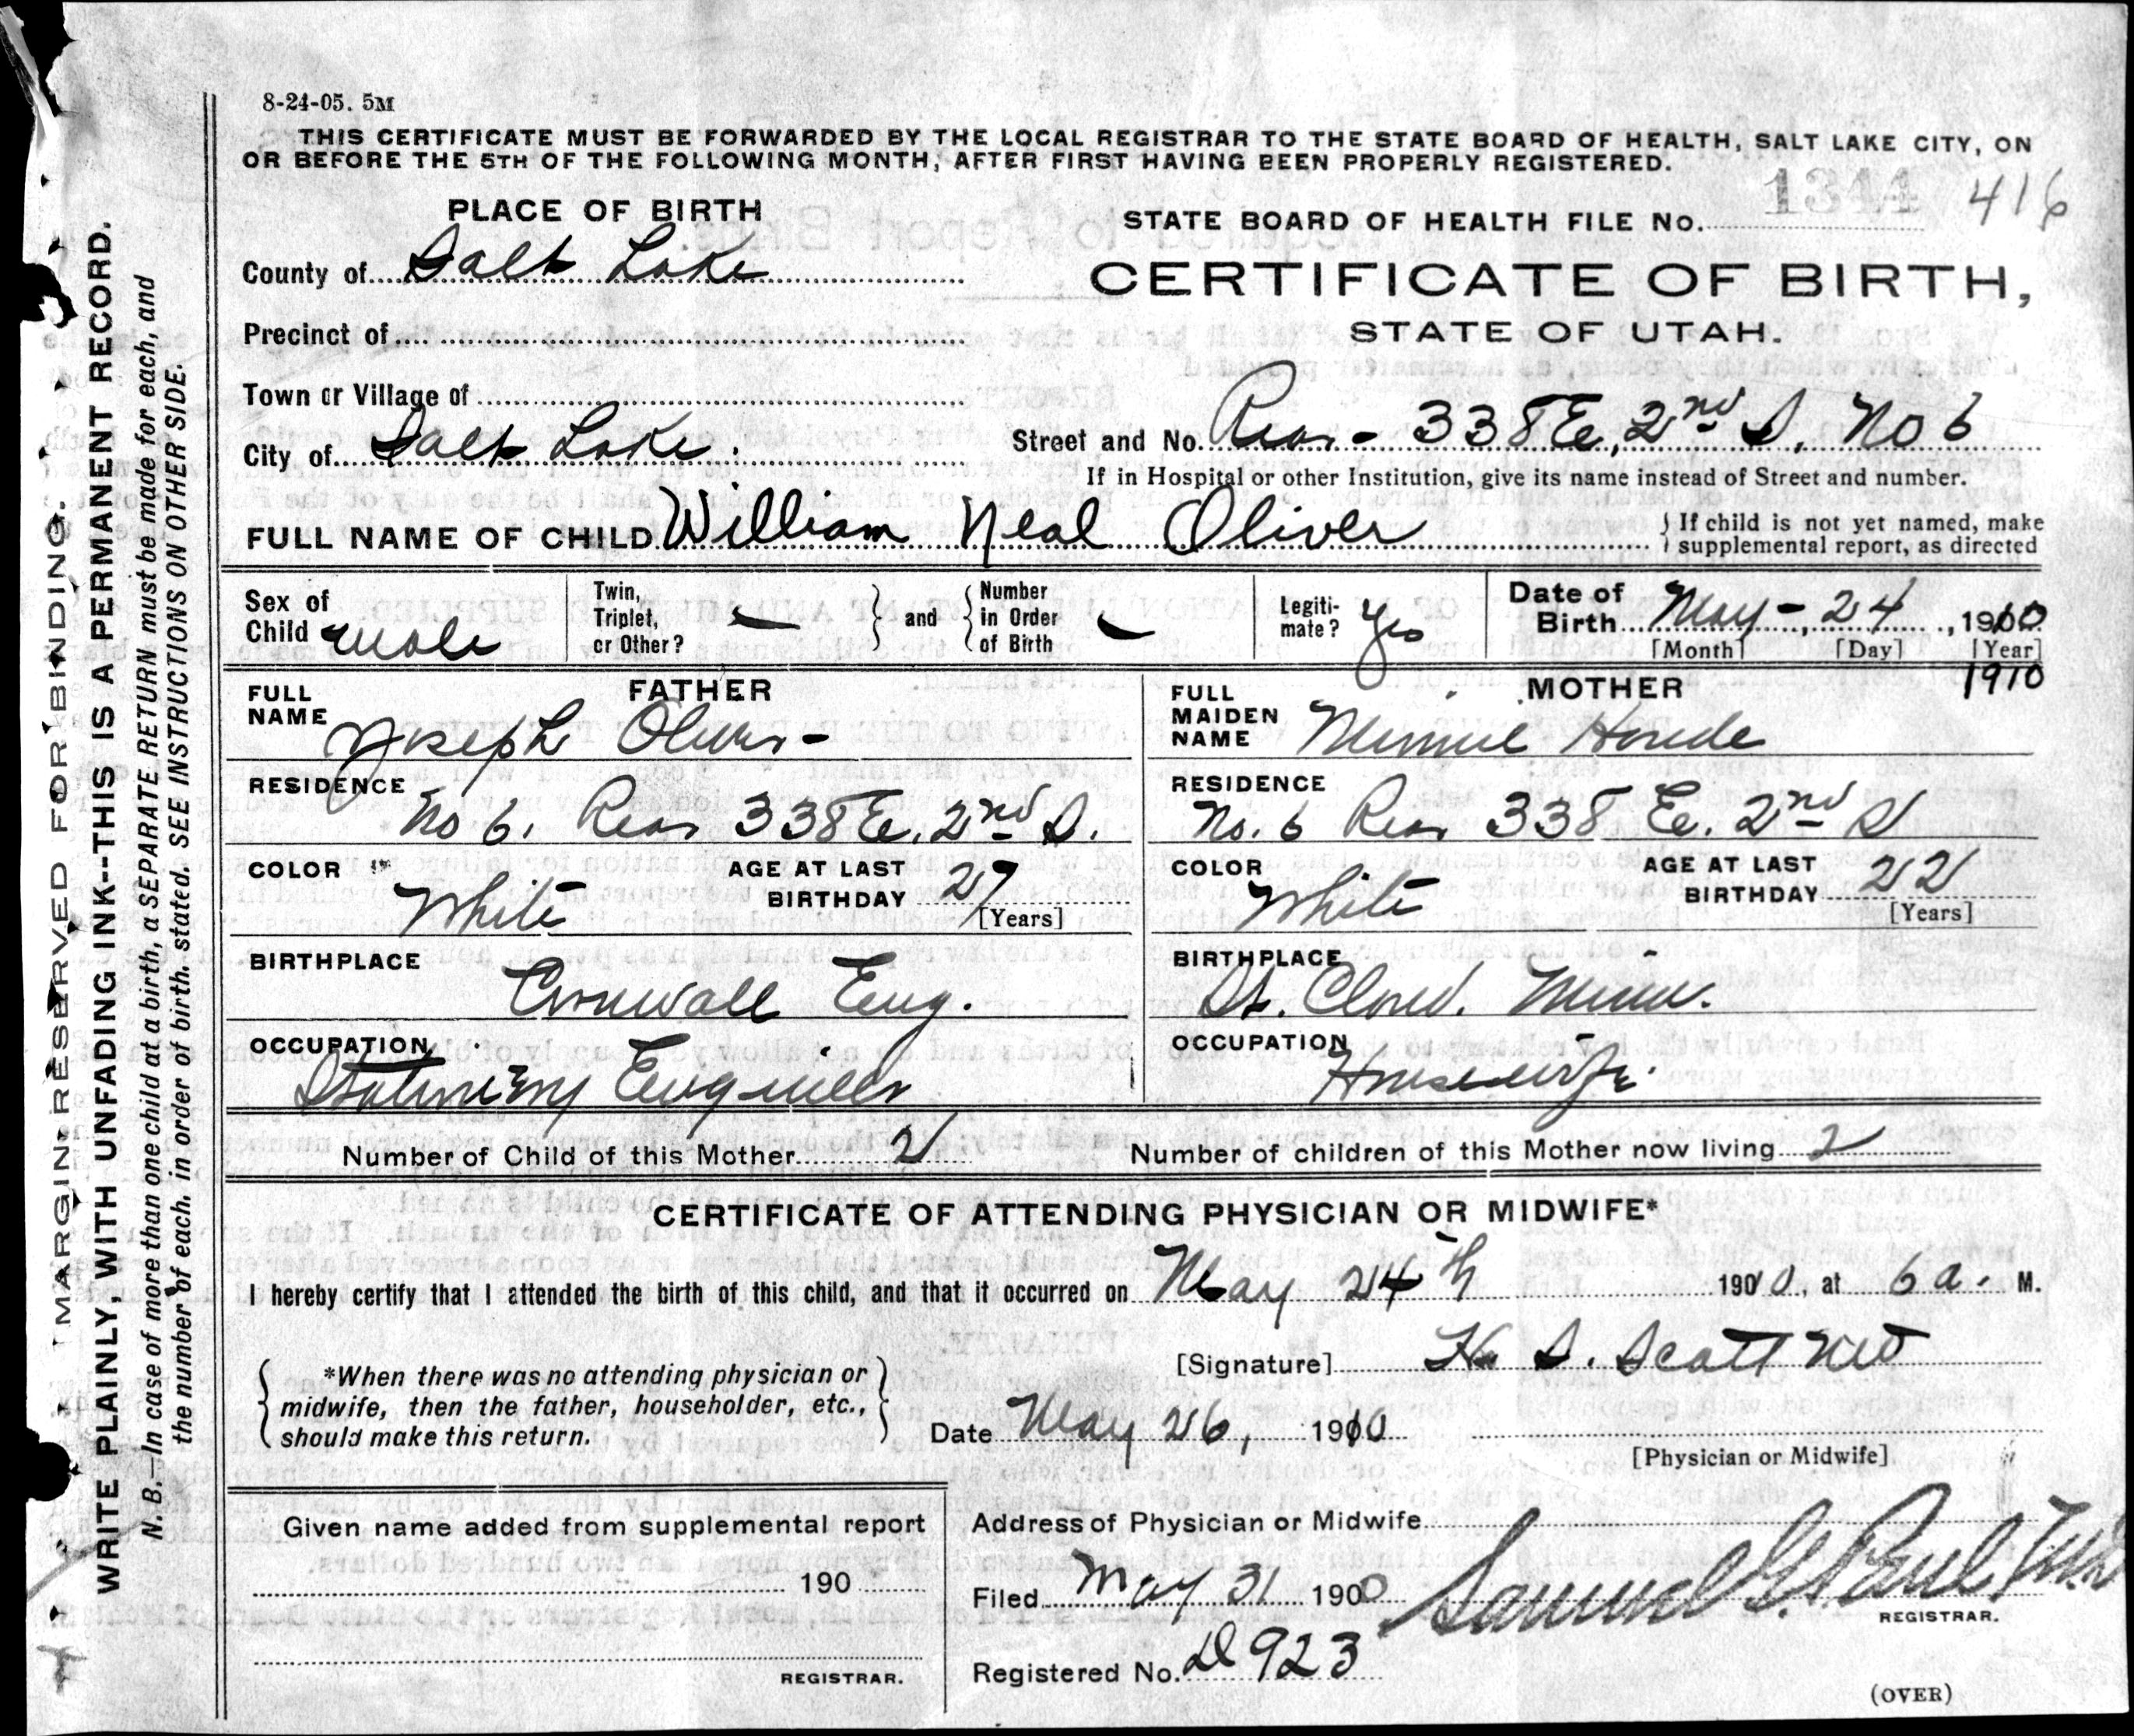 8-24-05. 5M
THIS CERTIFICATE MUST BE FORWARDED BY THE LOCAL REGISTRAR TO THE STATE BOARD OF HEALTH, SALT LAKE CITY, ON
OR BEFORE THE 5TH OF THE FOLLOWING MONTH, AFTER FIRST HAVING BEEN PROPERLY REGISTERED.
PLACE OF BIRTH
STATE BOARD OF HEALTH FILE No. 1344 416
County of Salt Lake
CERTIFICATE OF BIRTH,
Precinct of
STATE OF UTAH.
Town or Village of
City of Salt Lake.
Street and No. Rear - 338 E. 2nd S. No 6
If in Hospital or other Institution, give its name instead of Street and number.
FULL NAME OF CHILD William Neal Oliver
If child is not yet named, make
supplemental report, as directed
Sex of
Child Male
Twin,
Triplet,
or Other? —
and
Number
in Order
of Birth —
Legiti-
mate? Yes
Date of
Birth May - 24, 1910
[Month] [Day] [Year]
1910
FATHER
FULL
NAME Joseph Oliver -
RESIDENCE No 6. Rear 338 E. 2nd S.
COLOR White
AGE AT LAST
BIRTHDAY 27
[Years]
BIRTHPLACE
Cornwall Eng.
OCCUPATION
Stationery Engineer
MOTHER
FULL
MAIDEN
NAME Minnie Houde
RESIDENCE
No. 6 Rear 338 E. 2nd S
COLOR White
AGE AT LAST
BIRTHDAY 22
[Years]
BIRTHPLACE
St. Cloud. Minn.
OCCUPATION
Housewife.
Number of Child of this Mother 2
Number of children of this Mother now living 2
CERTIFICATE OF ATTENDING PHYSICIAN OR MIDWIFE*
I hereby certify that I attended the birth of this child, and that it occurred on May 24th 1910, at 6 a. M.
*When there was no attending physician or
midwife, then the father, householder, etc.,
should make this return.
[Signature] H. S. Scott MD
Date May 26, 1910
[Physician or Midwife]
Given name added from supplemental report
190
REGISTRAR.
Address of Physician or Midwife
Filed May 31 1900
Samuel G. Paul
REGISTRAR.
Registered No. D 923
(OVER)
MARGIN RESERVED FOR BINDING.
WRITE PLAINLY, WITH UNFADING INK--THIS IS A PERMANENT RECORD.
N. B.—In case of more than one child at a birth, a SEPARATE RETURN must be made for each, and
the number of each. in order of birth. stated. SEE INSTRUCTIONS ON OTHER SIDE.